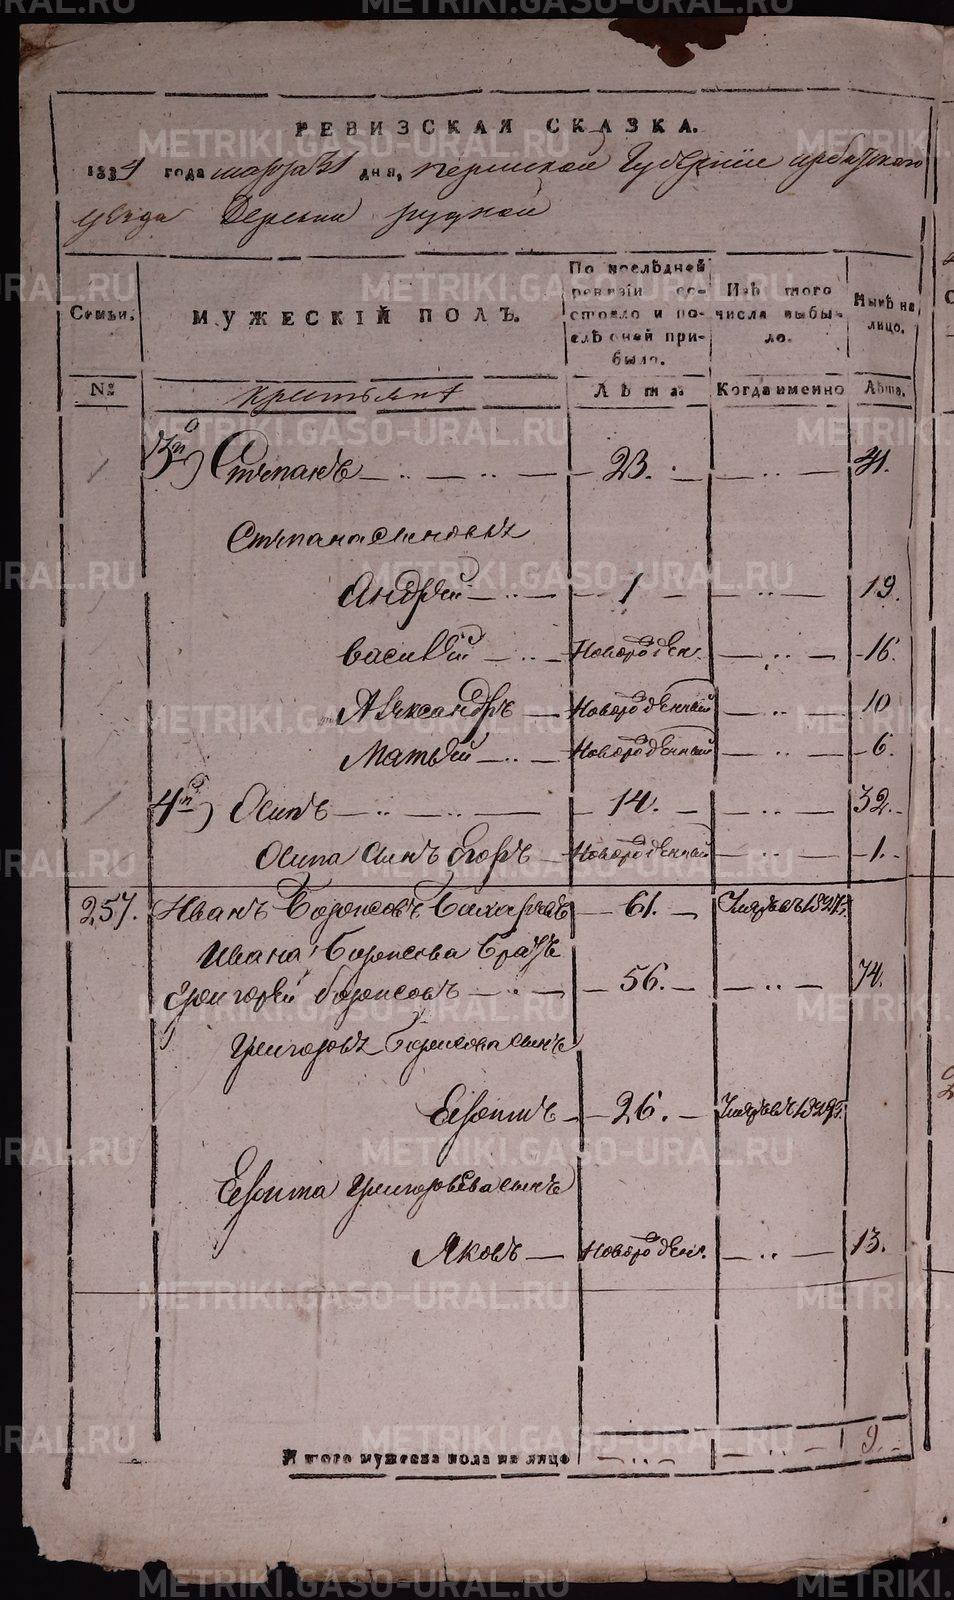 РЕВИЗСКАЯ СКАЗКА.
1834 года марта 31 дня, пермской Губернiи ирбитского
уезда Деревни рудной
Семьи. МУЖЕСКIЙ ПОЛЪ. По послѣдней ревизiи состояло и послѣ оней прибыло. Изъ того числа выбыло. Нынѣ на лицо.
№ крестьянъ Лѣта. Когда именно Лѣта.
3й) Степанъ 23. 41.
Степана сыновья
Андрей 1 19.
василей Новорожден. 16.
Александръ Новорожденный 10
Матвей Новорожденный 6.
4й) Осипъ 14. 32.
Осипа сынъ Егоръ Новорожденный 1.
257. Иванъ Борисовъ 61. Умре въ 1827.
Ивана Борисова братъ
Григорей борисовъ 56. 74.
Григорья Борисова сынъ
26. Умре въ 1829.
Григорьева сынъ
Яковъ Новорожден. 13.
Итого мужеска пола на лицо 9.
METRIKI.GASO-URAL.RU